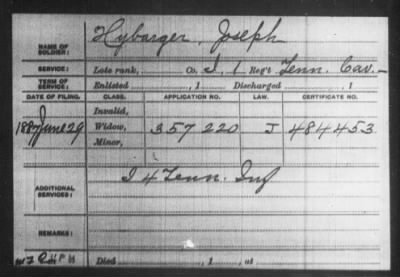 NAME OF SOLDIER: Hybarger, Joseph
SERVICE: Late rank, Co. I, 1 Reg't Tenn. Cav.
TERM OF SERVICE: Enlisted , 1 Discharged , 1
DATE OF FILING. CLASS. APPLICATION NO. LAW. CERTIFICATE NO.
Invalid,
1887 June 29 Widow, 357 220 J 484453
Minor,
ADDITIONAL SERVICES: I 4 Tenn. Inf
REMARKS:
Died , 1 , at